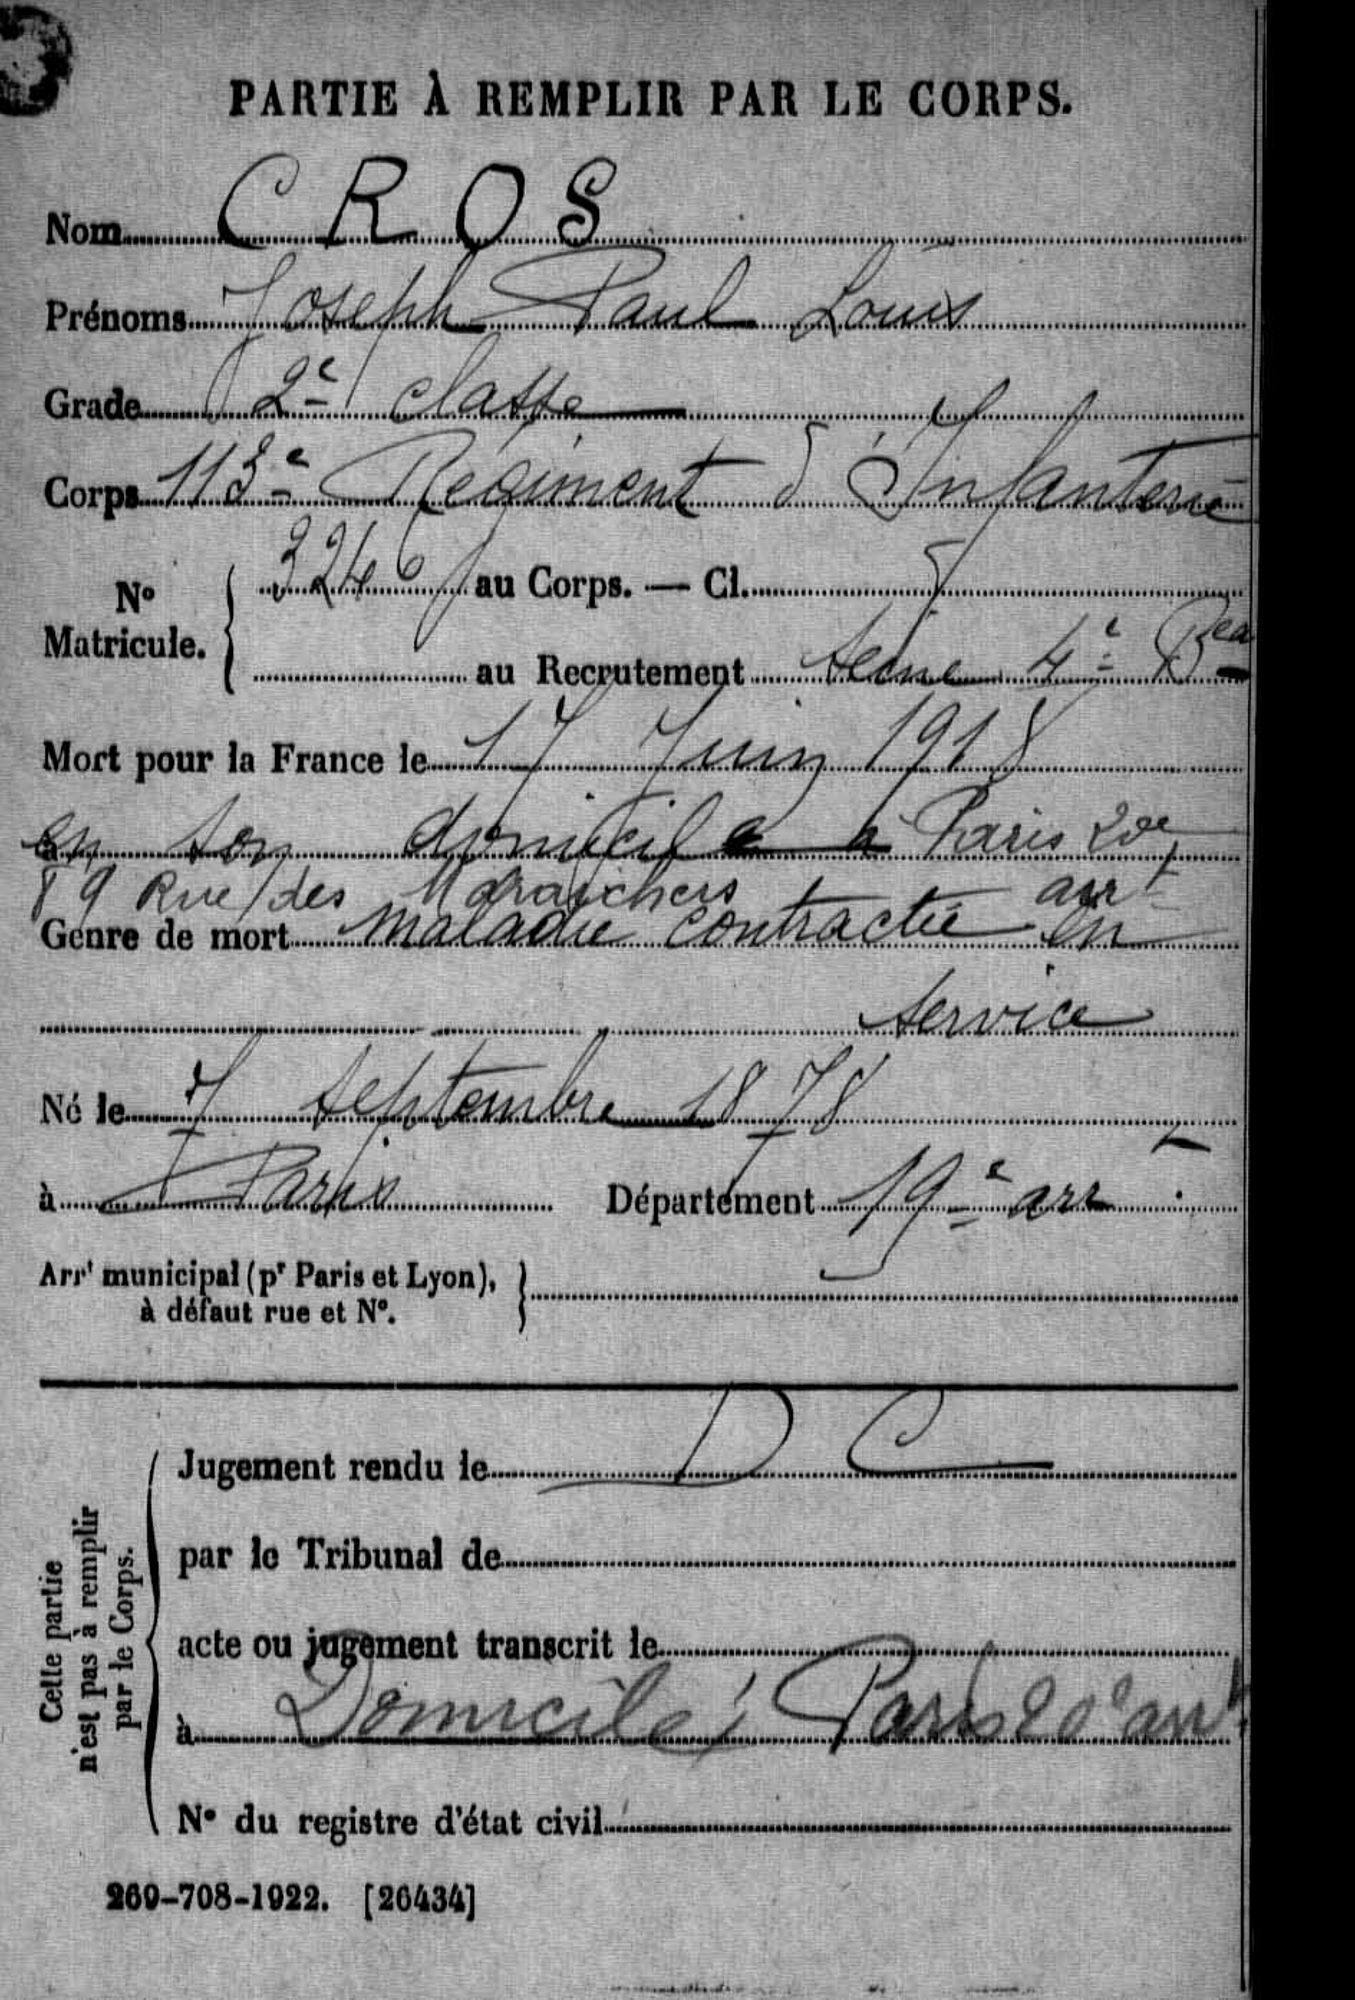 PARTIE À REMPLIR PAR LE CORPS.
Nom CROS
Prénoms Joseph Paul Louis
Grade 2e classe
Corps 113e Régiment d'Infanterie
N° Matricule. 3246 au Corps. — Cl.
au Recrutement Seine 4e Bea
Mort pour la France le 17 Juin 1918
à en son domicile à Paris 20e
89 Rue des Maraichers arrt
Genre de mort maladie contractée en
service
Né le 7 septembre 1878
à Paris Département 19e arrt
Arrt municipal (pr Paris et Lyon),
à défaut rue et N°.
Cette partie
n'est pas à remplir
par le Corps.
Jugement rendu le D C
par le Tribunal de
acte ou jugement transcrit le
à Domicilé Paris 20e arrt
N° du registre d'état civil
269-708-1922. [26434]